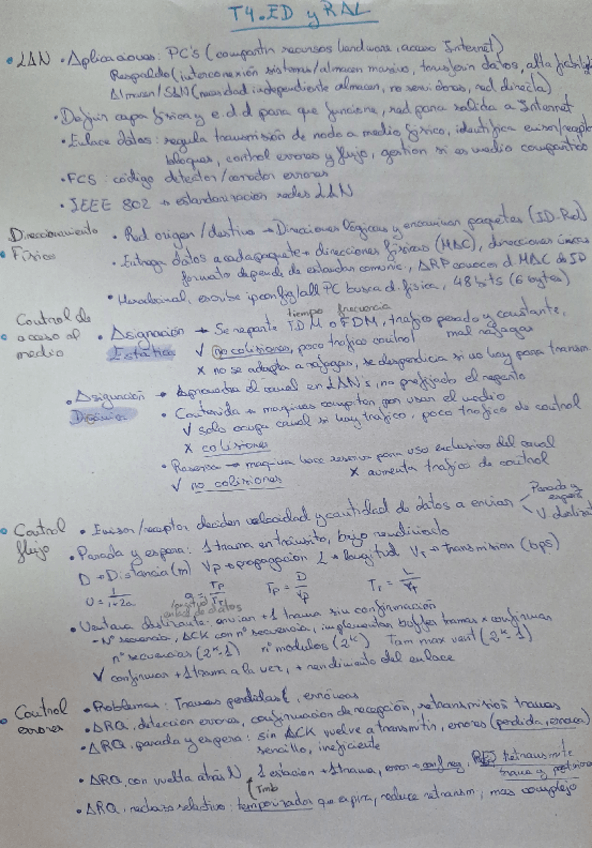 T4. ED y RAL
• LAN • Aplicaciones: PC's (compartir recursos hardware, acceso Internet)
Respaldo (interconexión sistemas/almacen masivo, transferir datos, alta
Almacen/SAN (necesidad independiente almacen, no servidores, red directa)
• Definir capa física y e.d.d para que funcione, red para salida a Internet
• Enlace datos: regula transmisión de nodo a medio físico, identifica emisor/recept
bloques, control errores y flujo, gestion si es medio compartido
• FCS: código detector/corrector errores
• IEEE 802 → estandarización redes LAN
Direccionamiento
• Físico
• Red origen/destino → Direcciones lógicas y encaminar paquetes (ID-Red)
• Entrega datos a cada paquete → direcciones físicas (MAC), direcciones únicas
formato depende de estandar comunic., ARP conocer d MAC de ID
• Hexadecimal, escribe ipconfig/all PC busca d. física, 48 bits (6 bytes)
• Control de acceso al medio
tiempo frecuencia
• Asignación → Se reparte TDM o FDM, trafico pesado y constante,
Estática mal ráfagas
√ no colisiones, poco trafico control
x no se adapta a ráfagas, se desperdicia si no hay para transm
• Asignación → Aprovecha el canal en LAN's, no prefijado el reparto
Dinámica
• Contenida → maquinas compiten por usar el medio
√ solo ocupa canal si hay trafico, poco trafico de control
x colisiones
• Reserva → maquina hace reserva para uso exclusivo del canal
√ no colisiones x aumenta trafico de control
• Control flujo
• Emisor/receptor deciden velocidad y cantidad de datos a enviar
Parada y espera
V. desliza
• Parada y espera: 1 trama en tránsito, bajo rendimiento
D → Distancia (m) Vp → propagacion L → longitud Vt → transmision (bps)
U = 1/1+2a a = Tp/Tt Tp = D/Vp Tt = L/Vt
• Ventana deslizante: envian +1 trama sin confirmación
- Nº secuencia, ACK con nº secuencia, implementan buffer tramas x confirmar
nº secuencias (2ᵏ-1) nº modulos (2ᵏ) Tam max vent (2ᵏ-1)
√ confirmar +1 trama a la vez, + rendimiento del enlace
• Control errores
• Problemas: Tramas perdidas, erróneas
• ARQ, detección errores, confirmación de recepción, retransmisión tramas
• ARQ, parada y espera: sin ACK vuelve a transmitir, errores (perdida, erronea)
sencillo, ineficiente
• ARQ, con vuelta atrás N 1 estacion +1 trama, error → conf neg, retransmite
trama y
Timb
• ARQ, rechazo selectivo: temporizador que expira, reduce retransm; mas complejo